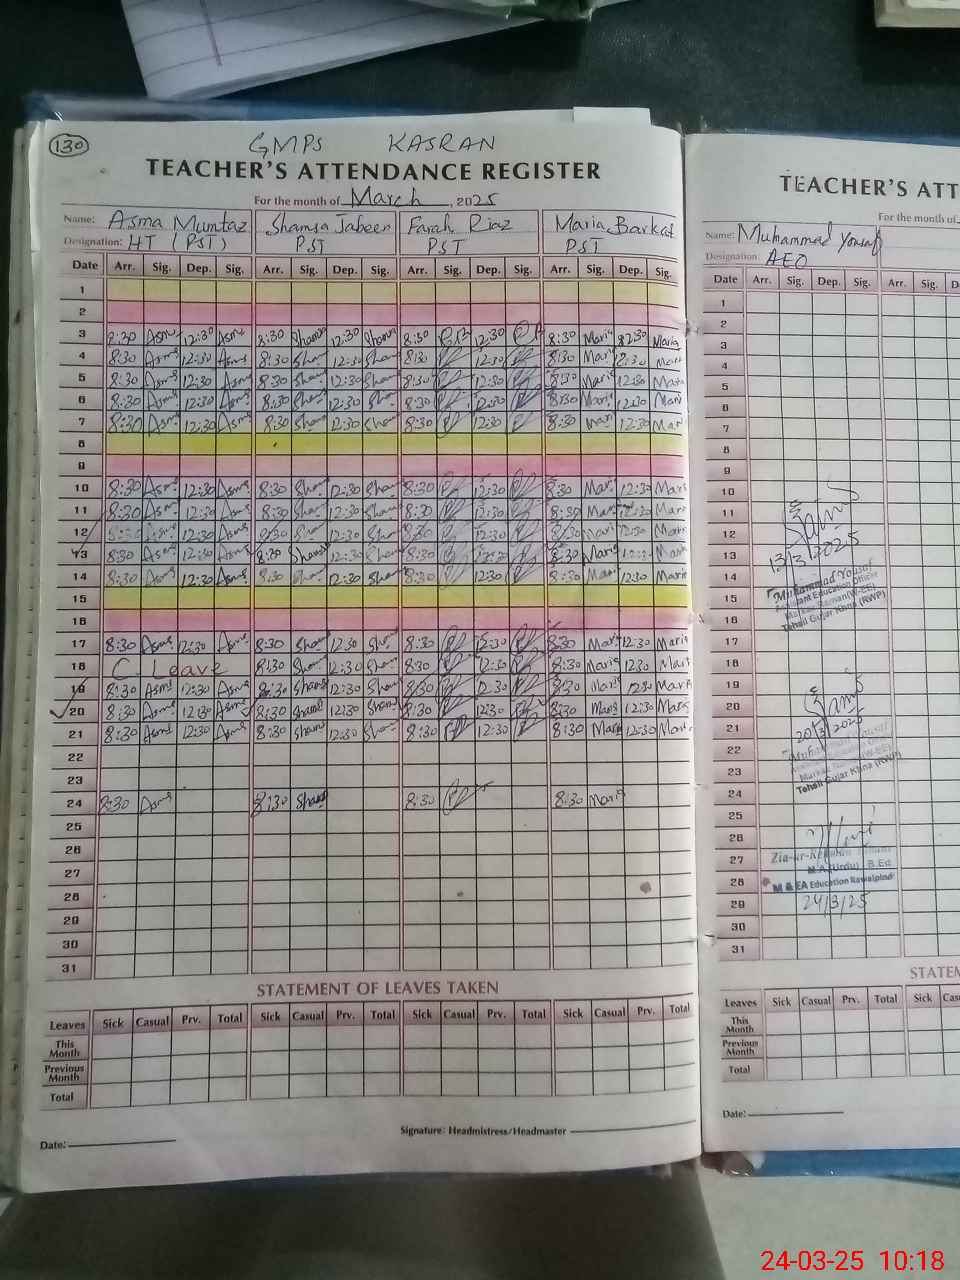 130
GMPS KASRAN
TEACHER'S ATTENDANCE REGISTER
For the month of March, 2025
Name: Asma Mumtaz Shamsa Jabeen Farah Riaz Maria Barkat
Designation: HT (PST) PST PST PST
Date Arr. Sig. Dep. Sig. Arr. Sig. Dep. Sig. Arr. Sig. Dep. Sig. Arr. Sig. Dep. Sig.
1
2
3 8:30 Asma 12:30 Asma 8:30 Shamsa 12:30 Shamsa 8:30 12:30 8:30 Maria 12:30 Maria
4 8:30 Asma 12:30 Asma 8:30 Sham 12:30 Sham 8:30 12:30 8:30 Mari 12:30 Mari
5 8:30 Asma 12:30 Asma 8:30 Sham 12:30 Sham 8:30 12:30 8:30 Maria 12:30 Maria
6 8:30 Asma 12:30 Asma 8:30 Sham 12:30 Sha 8:30 12:30 8:30 Mari 12:30 Mari
7 8:30 Asma 12:30 Asma 8:30 Sham 12:30 Sham 8:30 12:30 8:30 Mari 12:30 Mari
8
9
10 8:30 Asma 12:30 Asma 8:30 Sham 12:30 Sham 8:30 12:30 8:30 Mari 12:30 Mari
11 8:30 Asma 12:30 Asma 8:30 Sham 12:30 Sham 8:30 12:30 8:30 Mari 12:30 Mari
12 8:30 Asma 12:30 Asma 8:30 Sham 12:30 Sham 8:30 12:30 8:30 Maria 12:30 Maria
13 8:30 Asma 12:30 Asma 8:30 Shamsa 12:30 Sham 8:30 12:30 8:30 Maria 12:30 Maria
14 8:30 Asma 12:30 Asma 8:30 Sham 12:30 Sham 8:30 12:30 8:30 Mari 12:30 Maria
15
16
17 8:30 Asma 12:30 Asma 8:30 Sham 12:30 Sha 8:30 12:30 8:30 Maria 12:30 Maria
18 C. Leave 8:30 Sham 12:30 Sham 8:30 12:30 8:30 Maria 12:30 Mari
19 8:30 Asma 12:30 Asma 8:30 Shamsa 12:30 Sham 8:30 12:30 8:30 Maria 12:30 Maria
20 8:30 Asma 12:30 Asma 8:30 Shamsa 12:30 Sham 8:30 12:30 8:30 Maria 12:30 Maria
21 8:30 Asma 12:30 Asma 8:30 Shamsa 12:30 Sham 8:30 12:30 8:30 Maria 12:30 Maria
22
23
24 8:30 Asma 8:30 Shamsa 8:30 8:30 Maria
25
26
27
28
29
30
31
STATEMENT OF LEAVES TAKEN
Leaves Sick Casual Prv. Total Sick Casual Prv. Total Sick Casual Prv. Total Sick Casual Prv. Total
This Month
Previous Month
Total
Signature: Headmistress/Headmaster
Date:
TEACHER'S ATT
For the month of
Name: Muhammad Yousaf
Designation: AEO
Date Arr. Sig. Dep. Sig. Arr. Sig. D
1
2
3
4
5
6
7
8
9
10
11
12
13
13/3/2025
14
Muhammad Yousaf
15
Assistant Education Officer
16
Tehsil Gujar Khna (RWP)
17
18
19
20
20/3/2025
21
22
Muhammad Yousaf
23
Tehsil Gujar Khna (RWP)
24
25
26
27
Zia-ur-Rehman
M.A (Urdu) B.Ed
28
M & EA Education Rawalpindi
29
24/3/25
30
31
STATEM
Leaves Sick Casual Prv. Total Sick Cas
This Month
Previous Month
Total
Date:
24-03-25 10:18